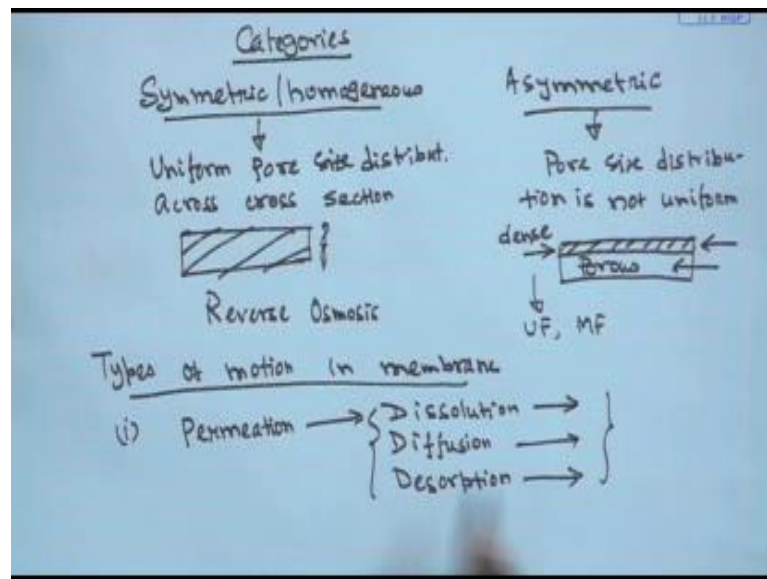 Categories
Symmetric / homogeneous
Uniform Pore size distribut.
across cross section
Reverse Osmosis
Asymmetric
Pore size distribu-
tion is not uniform
dense
Porous
UF, MF
Types of motion in membrane
(i) Permeation
Dissolution
Diffusion
Desorption